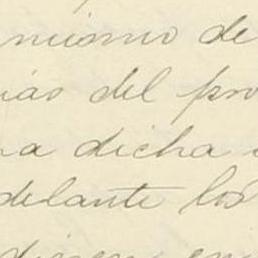 mismo de
ias del pro
a dicha
delante los